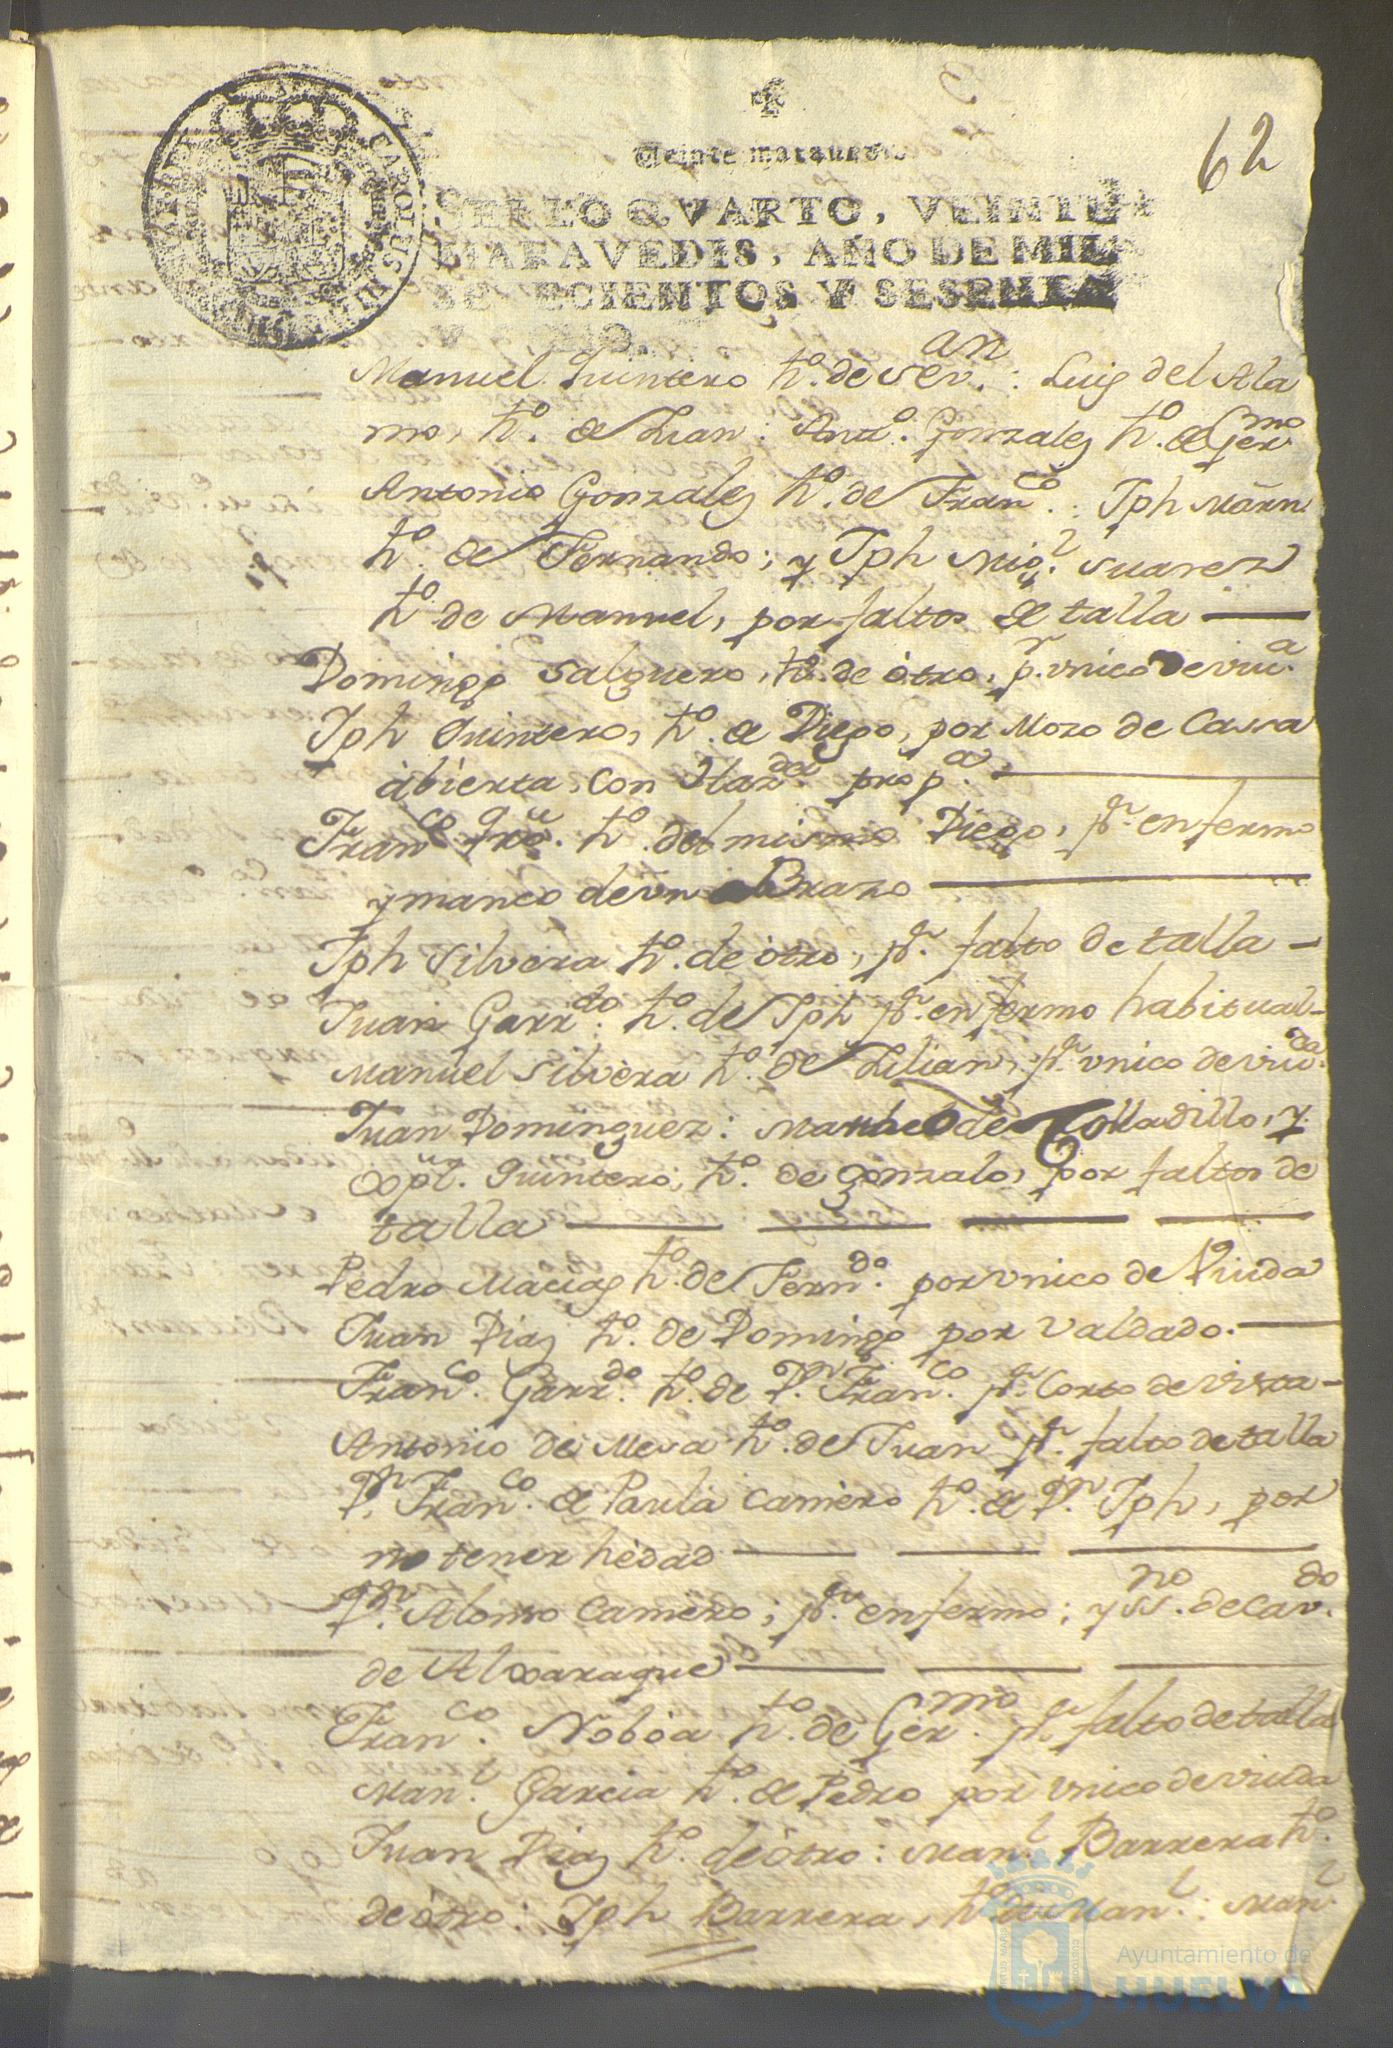 62
Veinte maravedis.
SELLO QVARTO, VEINTE
MARAVEDIS, AÑO DE MIL
SETECIENTOS Y SESENTA
CAROLUS III
Manuel Quintero hº. de Sevan.: Luis del Ala
mo, hº. de Lian: Antº. Gonzales hº. de Germo
Antonio Gonzales hº. de Franco.: Jph Marn
hº. de Fernando; y Jph Migl. Suarez
hº de Manuel, por faltos de talla
Domingo Salguero, hº. de ótro, pr. vnico de viua.
Jph Quintero, hº. de Diego, por Mozo de Cassa
ábierta, con propa.
Franco hº. del mismo Diego, pr. enfermo
y manco de vn Brazo
Jph Silvera hº. de ótro, pr. falto de talla
Juan Garrdo. hº. de Jph pr. enfermo habitual
Manuel Silvera hº. de Lilian, pr. vnico de viuda.
Juan Dominguez: Matheo de Tolladillo, y
Xpl. Quintero, hº. de Gonzalo, por faltos de
talla
Pedro Macias hº. de Ferndo. por vnico de Viuda
Juan Dias hº. de Domingo por Valdado.
Franco. Garrdo. hº. de Dn. Franco. pr. Corto de vista
Antonio de Mesa hº. de Juan pr. falto de talla
Dn. Franco. de Paula Camero hº. de Dn. Jph, por
no tener hedad
Dn. Alonso Camero; pr. enfermo; y SSno. de Cavdo.
de Alxaraque
Franco. Nobóa hº. de Germo. pr falto de talla
Manl. Garcia hº. de Pedro por vnico de viuda
Juan Dias hº. de ótro: Manl. Barrera hº.
de ótro: Jph Barrera, hº. de Manl.: Manl.
Ayuntamiento de
HUELVA